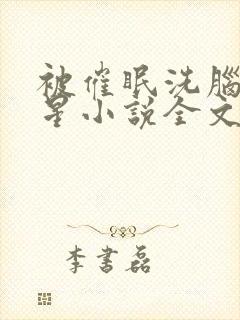 被催眠洗腦
星小說全文
李書磊